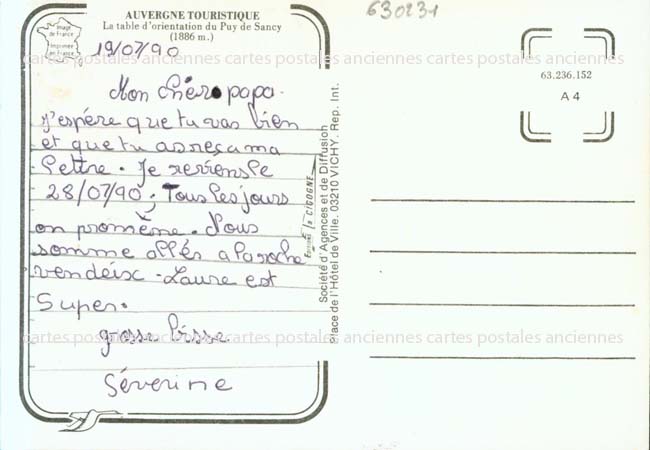 AUVERGNE TOURISTIQUE
La table d'orientation du Puy de Sancy
(1886 m.)
Image
de France
Imprimée
en France
630231
19/07/90
Mon chéro papa.
J'espère que tu vas bien
et que tu as reçu ma
lettre. Je reviens le
28/07/90, Tous les jours
on promène. Nous
somme allés a la roche
vendeix - Laure est
super.
grosse bisse
Séverine
Société d'Agences et de Diffusion
Place de l'Hôtel de Ville. 03210 VICHY. Rep. Int.
la CIGOGNE
63.236.152
A 4
cartes postales anciennes cartes postales anciennes cartes postales anciennes
cartes postales anciennes cartes postales anciennes cartes postales anciennes